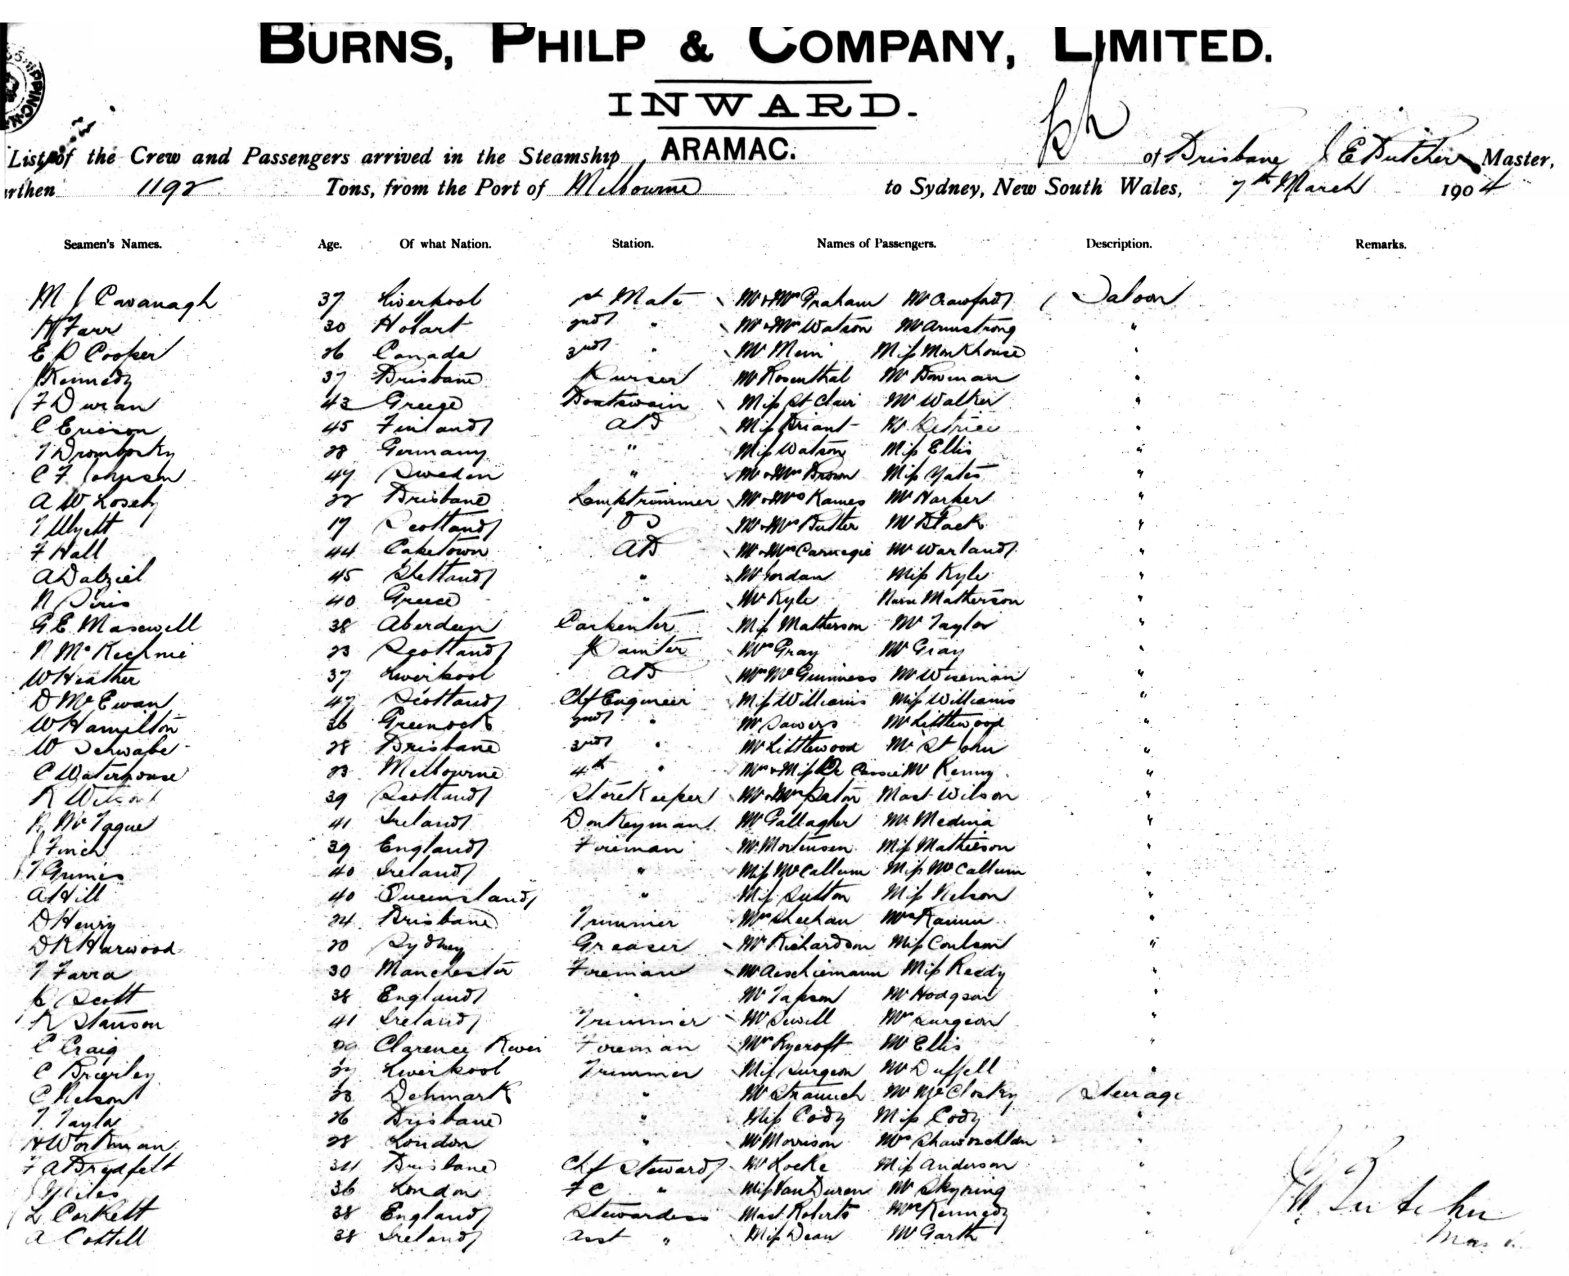 BURNS, PHILP & COMPANY, LIMITED.
INWARD.
List of the Crew and Passengers arrived in the Steamship ARAMAC. of Brisbane J E Butcher Master,
1192 Tons, from the Port of Melbourne to Sydney, New South Wales, 7th March 1904
Seamen's Names. Age. Of what Nation. Station. Names of Passengers. Description. Remarks.
M J Cavanagh 37 Liverpool 1st Mate Mr & Mrs Graham Mr Crawford Saloon
H Farr 30 Hobart 2nd " Mr & Mrs Watson Mr Armstrong "
E D Cooper 26 Canada 3rd " Mr Mein Miss Monkhouse "
J Kennedy 37 Brisbane Purser Mr Rosenthal Mr Bowman "
F Duran 43 Greece Boatswain Miss St Clair Mr Walker "
C Ericson 45 Finland AB Miss Briant "
28 Germany " Miss Watson Miss Ellis "
C F Johnson 47 Sweden " Mr & Mrs Brown Miss Yates "
A W Loseby 22 Brisbane Lamptrimmer Mr & Mrs Kames Mr Harker "
T Ulyett 19 Scotland OS Mr & Mrs Butler Mr Black "
F Hall 44 Capetown AB Mr & Mrs Carnegie Mr Warland "
A Dalziel 45 Shetland " Mr Jordan Miss Kyle "
N Siris 40 Greece " Mr Kyle Nurse Matherson "
G E Maxwell 38 Aberdeen Carpenter Miss Matherson Mr Taylor "
McKechnie 23 Scotland Painter Mrs Gray Mr Gray "
W Heather 37 Liverpool AB Mrs McGuinness Mr Wiseman "
D McEwan 47 Scotland Chf Engineer Miss Williams Miss Williams "
W Hamilton 36 Greenock 2nd " Mr Sawers Mr Littlewood "
W Schwabe 28 Brisbane 3rd " Mr Littlewood Mr St John "
C Waterhouse 23 Melbourne 4th " Mr Kenny "
R Wilson 39 Scotland Storekeeper Mr & Mrs Paton Mast Wilson "
McTague 41 Ireland Donkeyman Mr Gallagher Mr Medina "
J Finch 39 England Fireman Mr Mortensen Miss Mathieson "
T Grimes 40 Ireland " Miss McCallum Miss McCallum "
A Hill 40 Queensland " Miss Sutton Miss Nelson "
D Henry 24 Brisbane Trimmer Mrs Sheehan "
D R Harwood 20 Sydney Greaser Mr Richardson Miss Coulson "
T Farra 30 Manchester Fireman Mr Aeschiemann Miss Reedy "
Scott 38 England " Mr Tapson Mr Hodgson "
R Stanson 41 Ireland Trimmer Mr Sewell Mrs Surgeon "
C Craig Clarence River Fireman Mrs Rycroft Mr Ellis "
C Brierley 37 Liverpool Trimmer Miss Surgeon Mr Duffell "
C Nelson 38 Denmark " Mr Strauch Mr McClosky Steerage
T Taylor 26 Brisbane " Miss Cody Miss Cody "
H Workman 28 London " Mr Morrison "
F A Bredfelt 34 Brisbane Chf Steward Mr Locke Miss Anderson "
J Giles 36 London F C " Miss Van Duren Mr Skyring "
L Corkett 38 England Stewardess Mast Roberts Mrs Kennedy "
A Cottell 38 Ireland Asst " Miss Dean Mr Garth "
Butcher